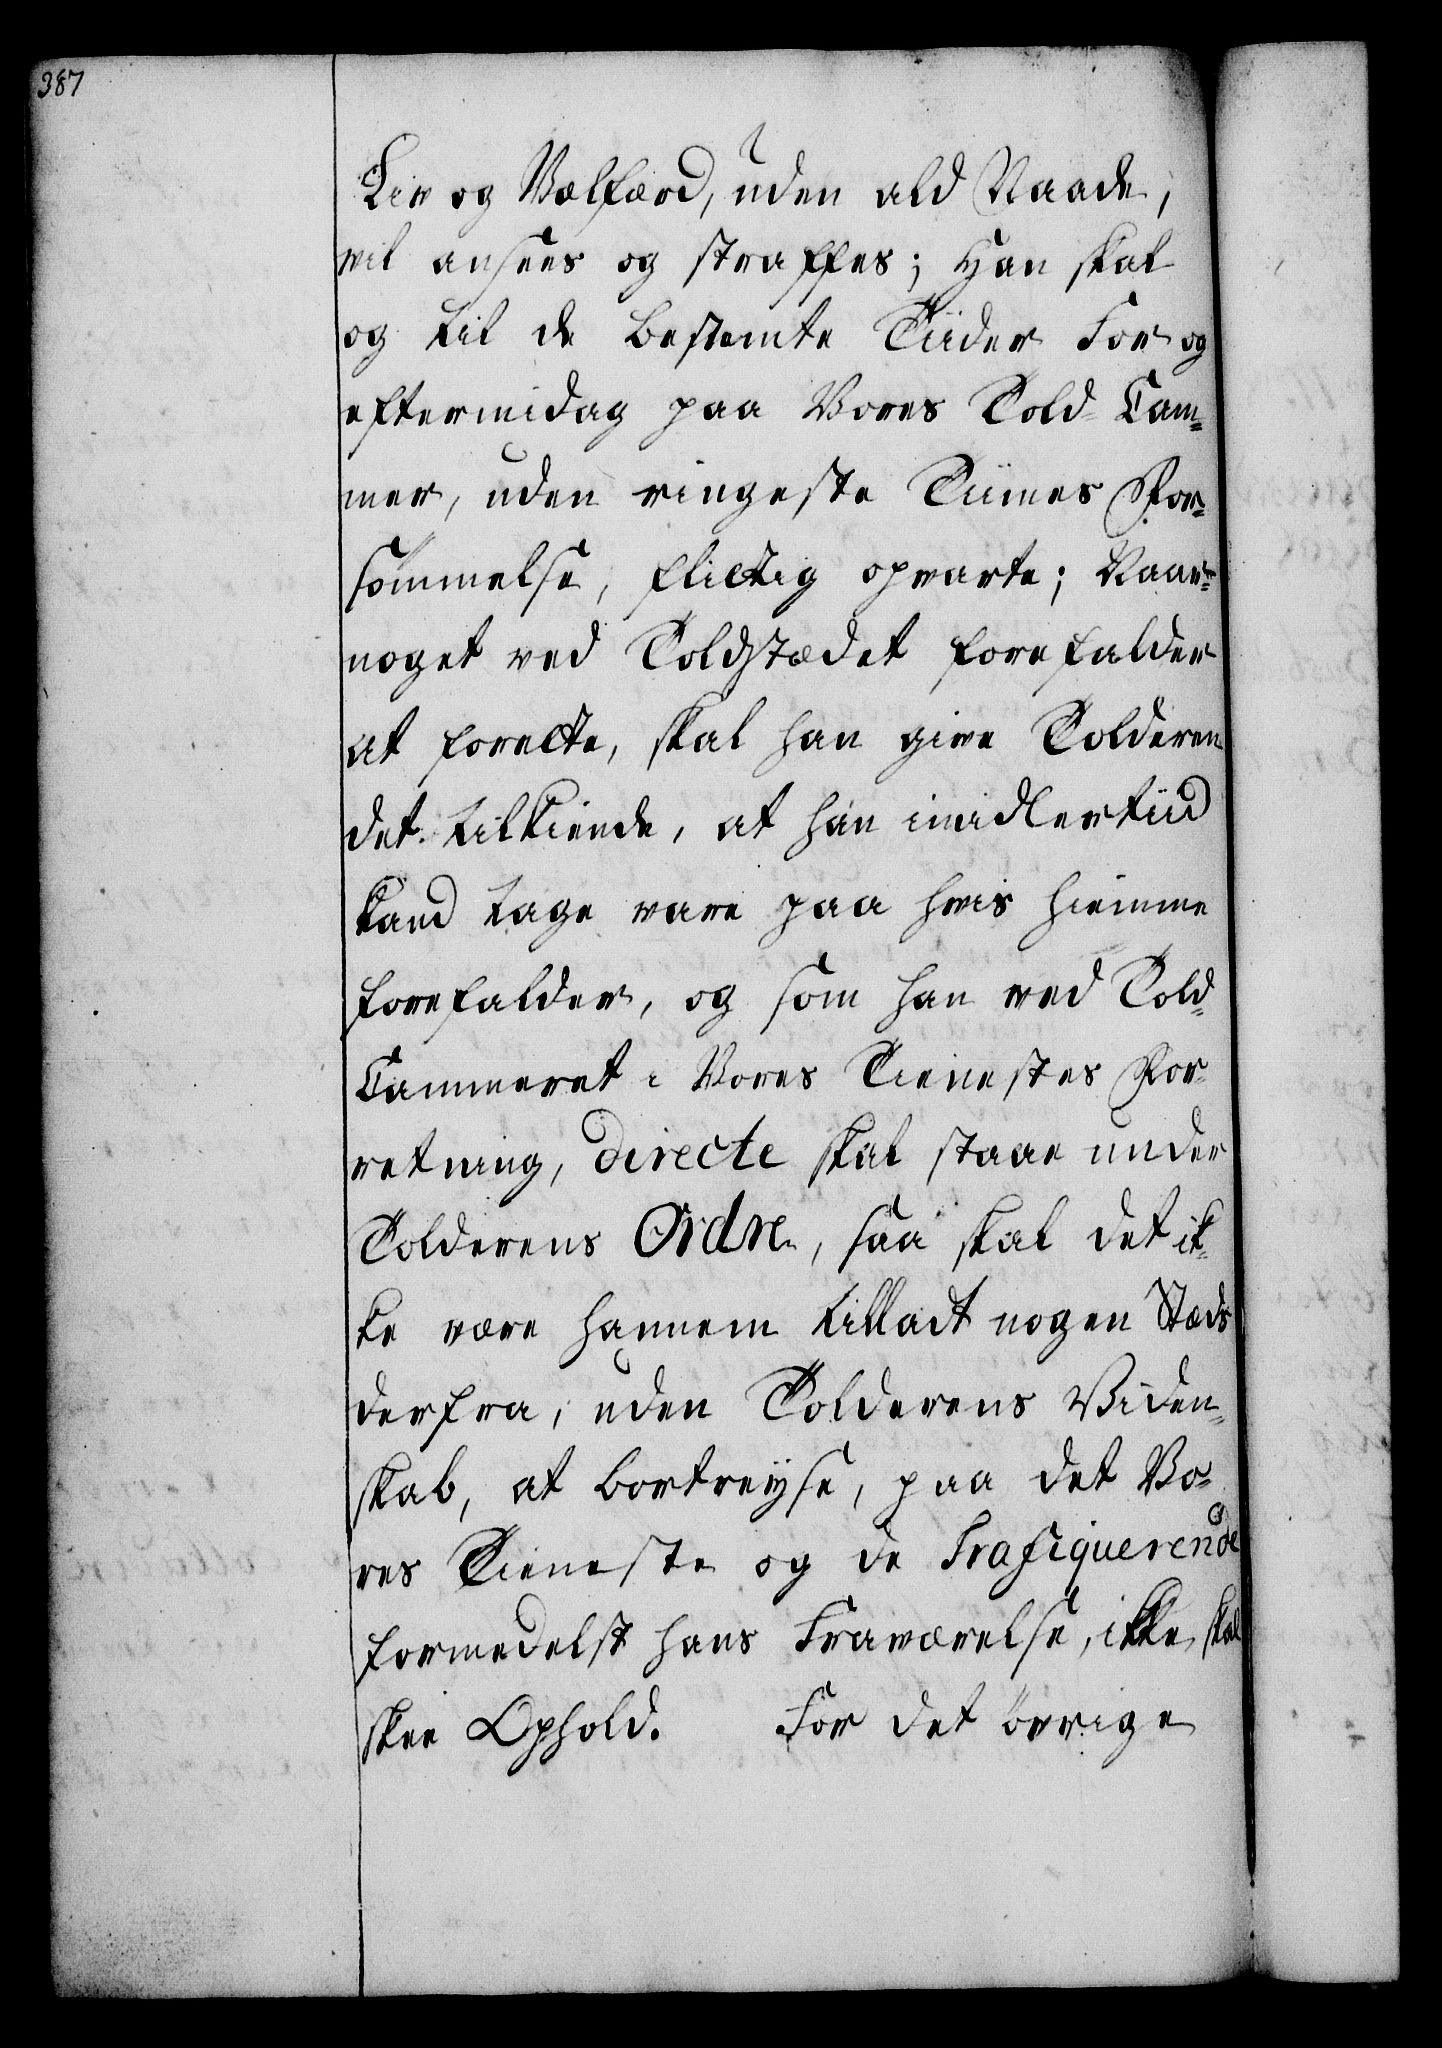 387
Liv og Velferd, uden ald Naade,
vil ansees og straffes; Han skal
og til de bestemte Tiider For og
eftermidag paa Vores Told Cam=
mer, uden ringeste Tiimes For=
sømmelse, flictig opvarte; Naar
noget ved Toldstædet forefalder
at forrette, skal han give Tolderen
det tilkiende, at han imidlertiid
kand tage vare paa hvis hiemme
forefalder, og som han ved Told=
Cammeret i Vores Tienestes For
retning, directe skal staae under
Tolderens Ordre, saa skal det ik=
ke være hannem tilladt nogen Stæds
derfra, uden Tolderens Viden=
skab, at bortreyse, paa det Vo=
res Tieneste og de Trafiquerende
formedelst hans Fraværelse, ikke skal
skee Ophold. For det øvrige